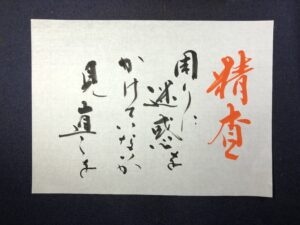 精査
周りに
迷惑を
かけていないか
見直しを